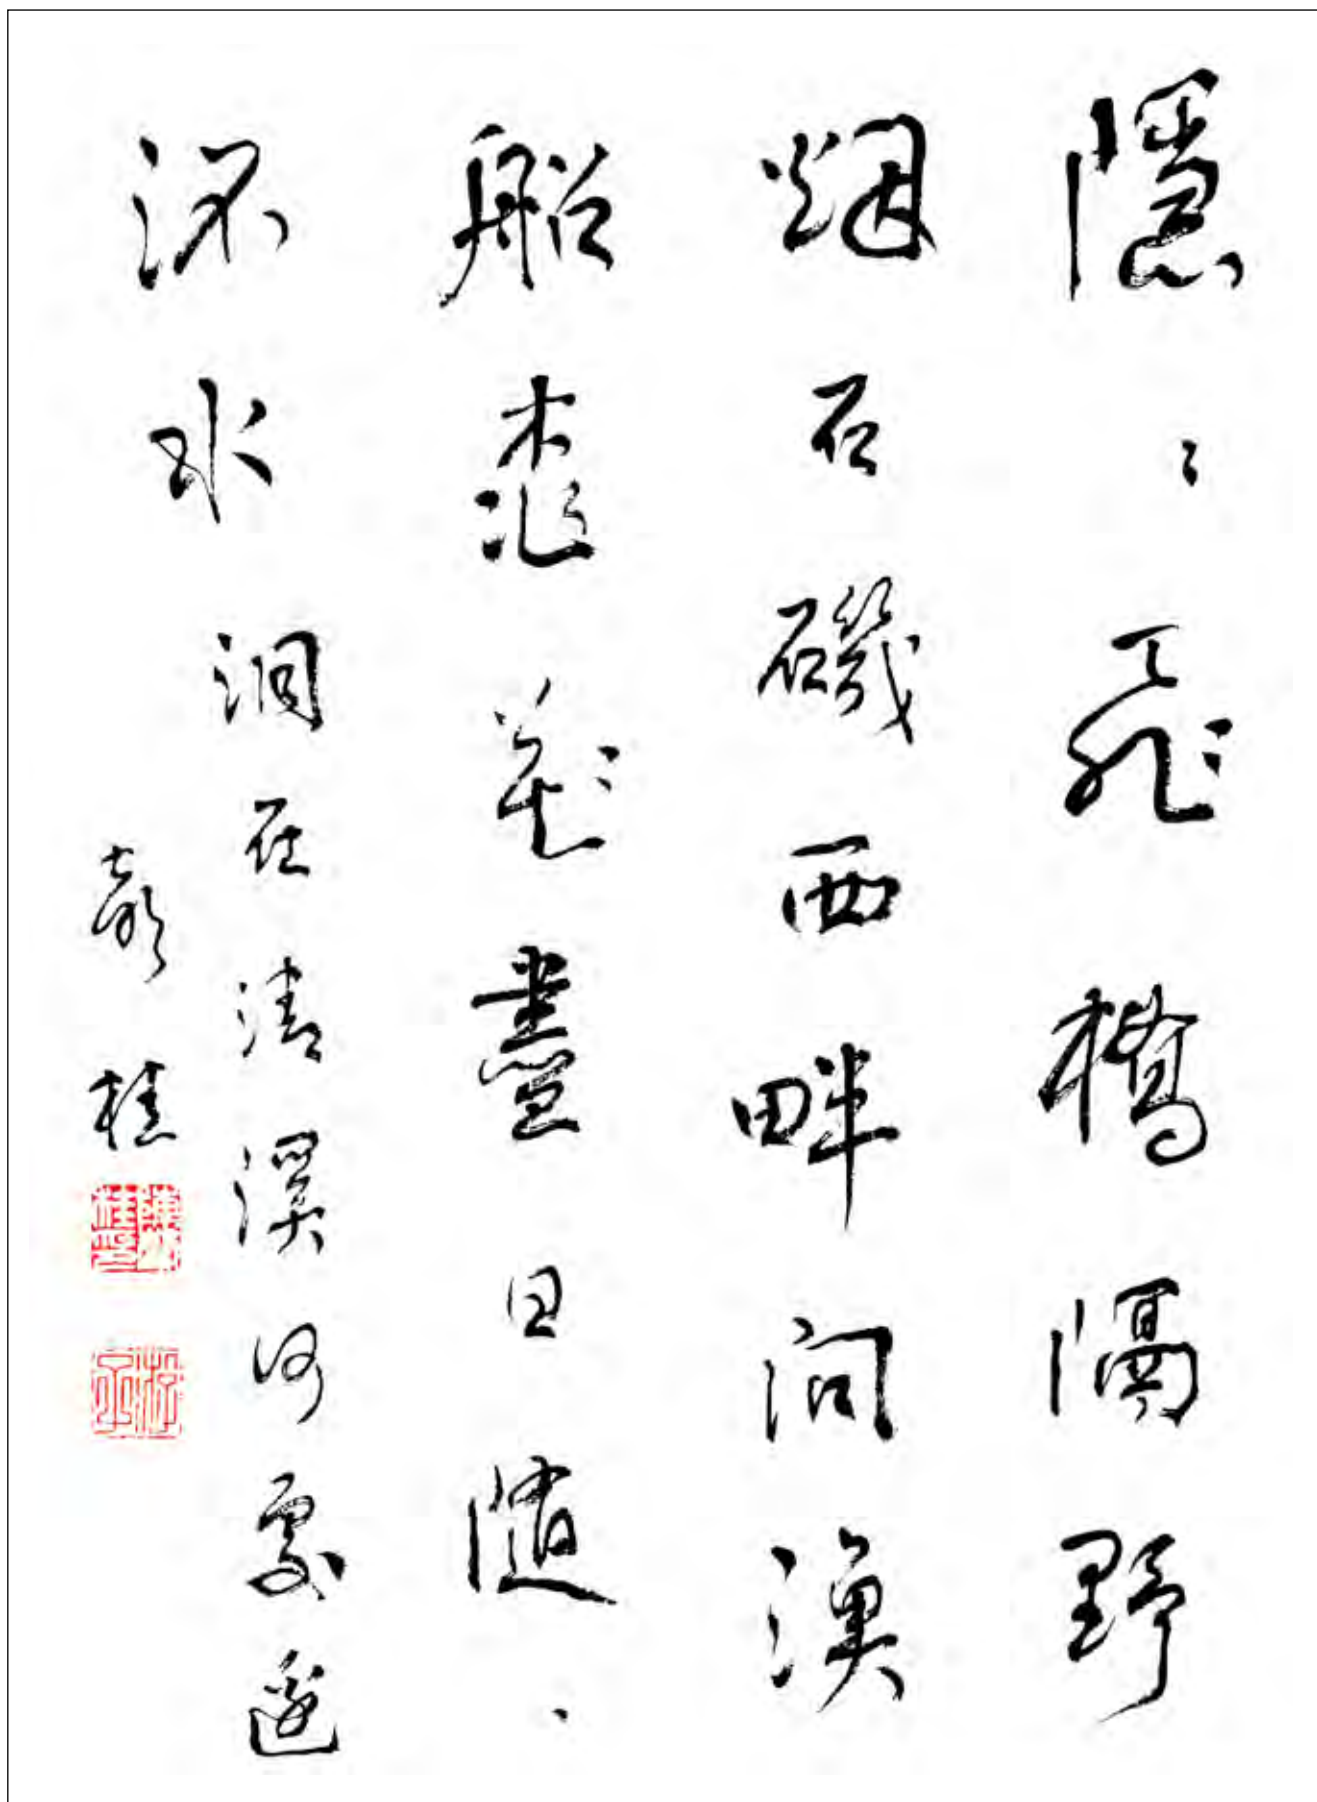 隱〻飛橋隔野
烟石磯西畔問漁
船桃花盡日隨
流水洞在清溪何處邊